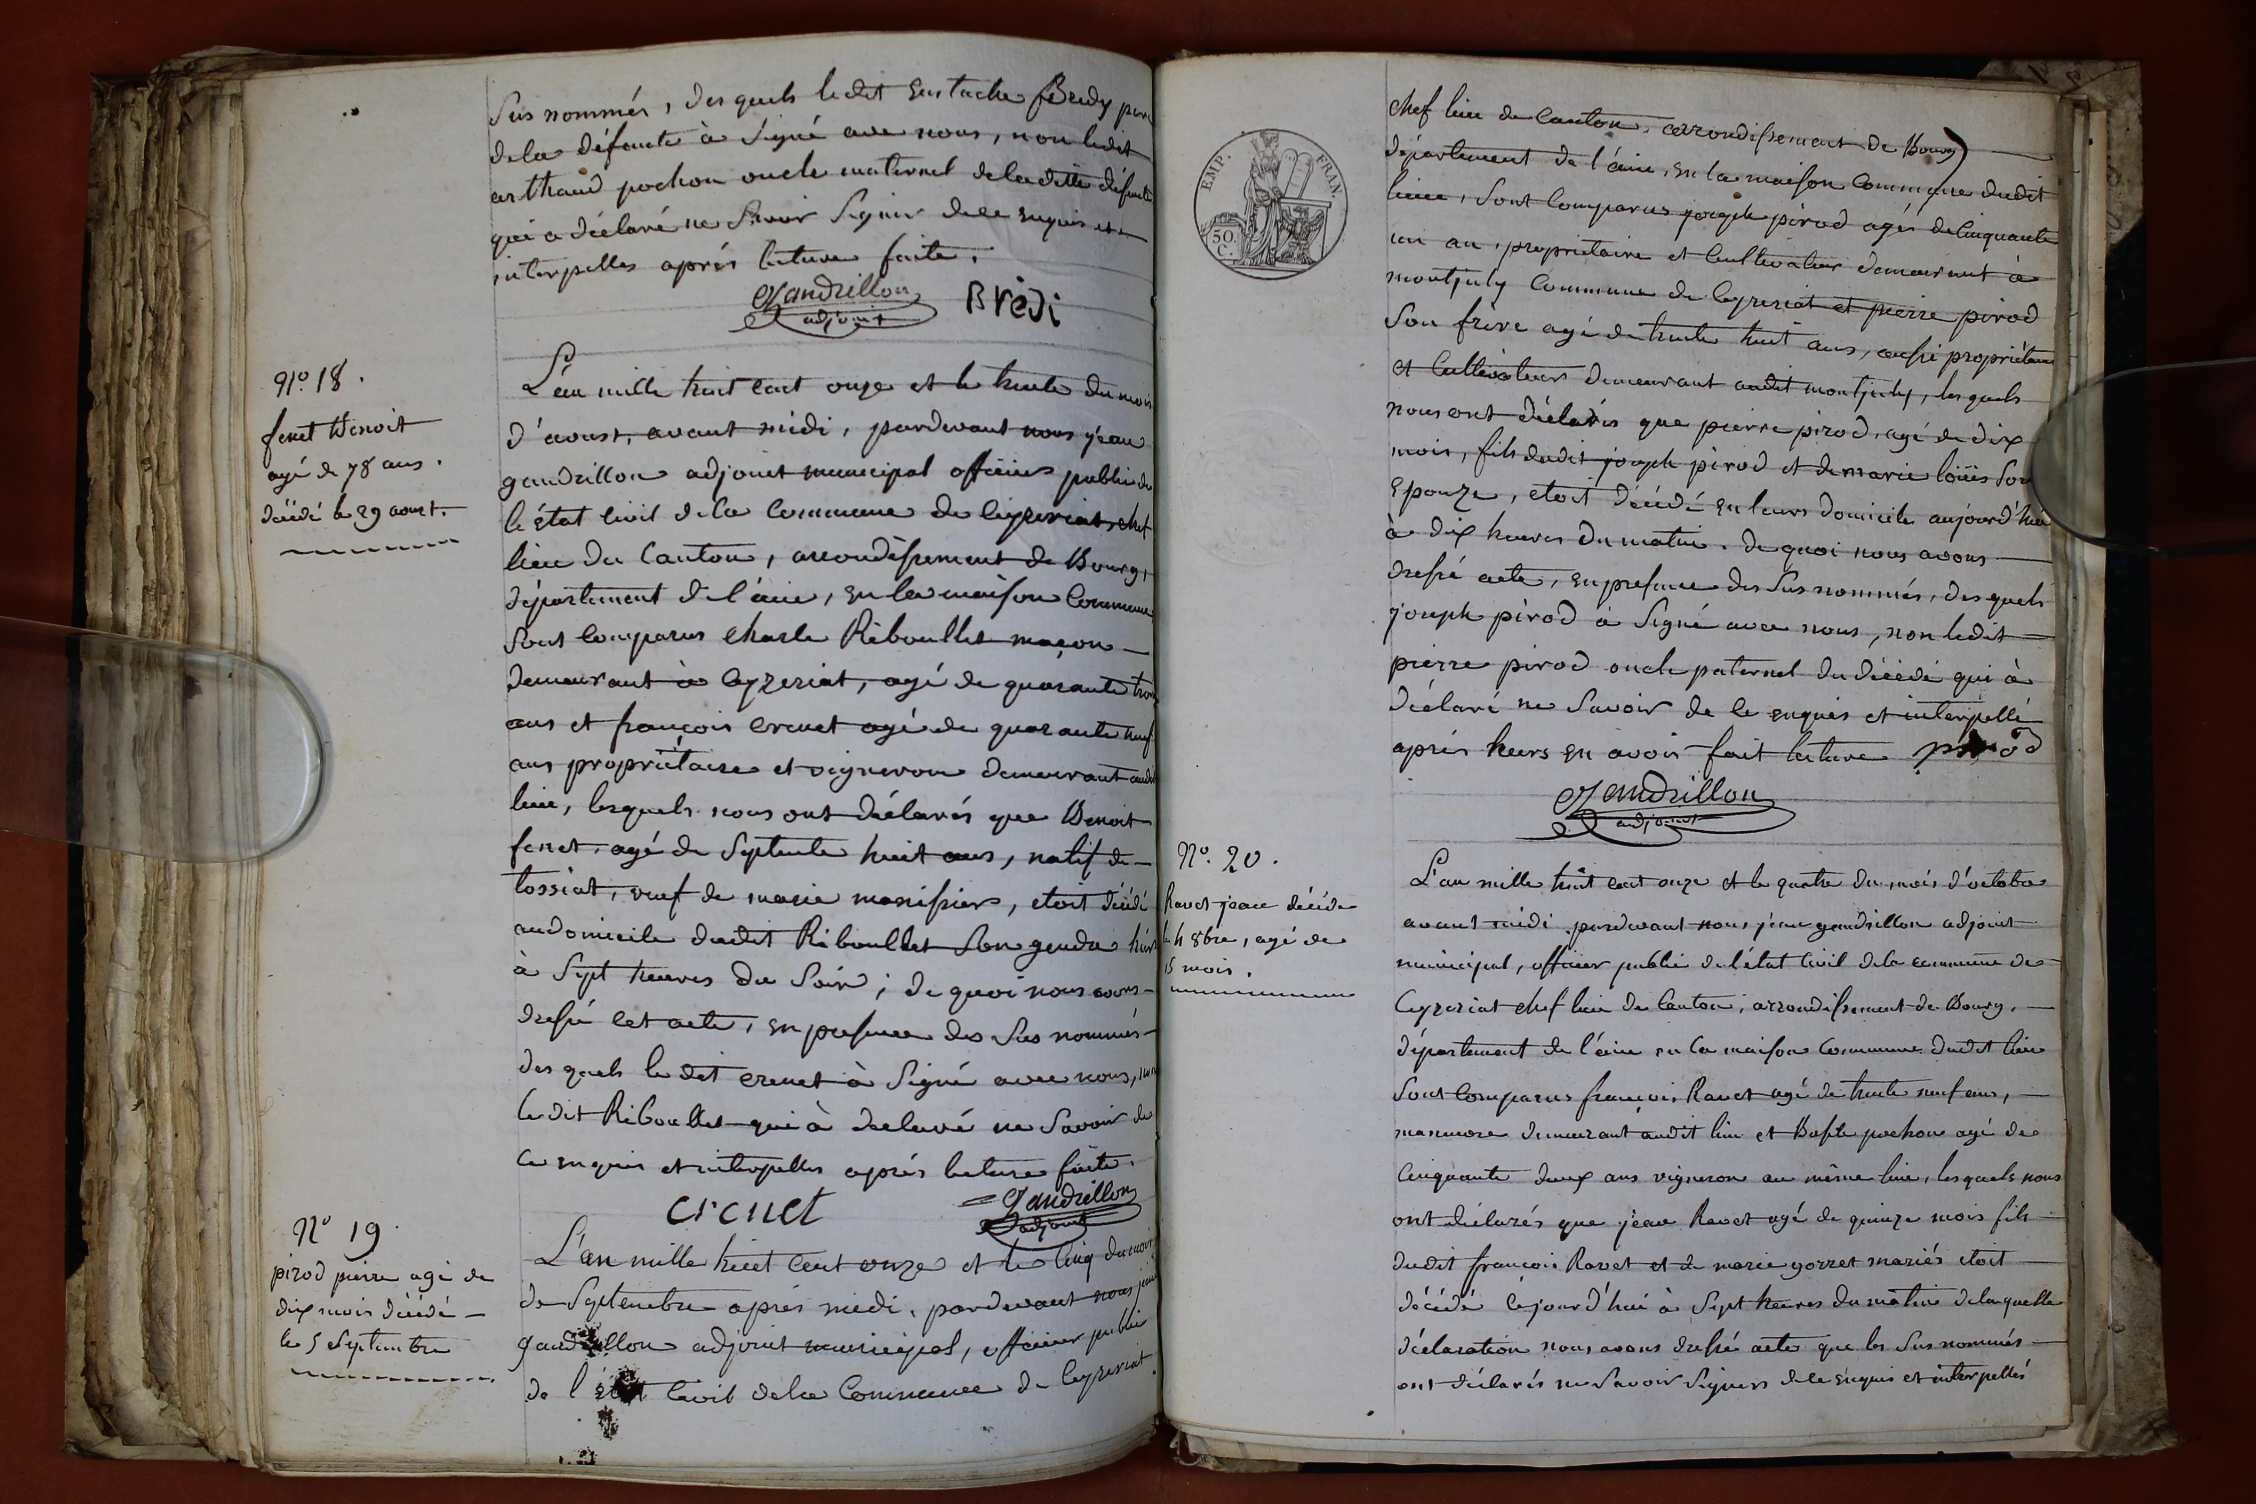 Sus nommés, des quels ledit Eustache Bredy pere
dela défunte à signé avec nous, non ledit
arthaud pochon oncle maternel deladitte défunte
qui a déclaré ne savoir signer dele enquis et
interpelles aprés lecture faite.
Gandrillon
adjoint
Brédi
N.o 18.
fenet Benoit
agé de 78 ans.
décédé le 29 aout.
L'an mille huit cent onze et le trente du mois
d'aoust, avant midi, pardevant nous jean
gandrillon adjoint municipal officier public de
l'état civil dela commune de Ceyzeriat, chef
lieu du Canton, arrondissement de Bourg,
département de l'ain, en la maison Commune
sont comparus charle Riboullet maçon
demeurant à Ceyzeriat, agé de quarante trois
ans et françois crenet agé de quarante neuf
ans propriétaire et vigneron demeurant audit
lieu, lesquels nous ont déclarés que Benoit
fenet, agé de septente huit ans, natif de
tossiat, veuf de marie monissier, etoit décédé
au domicile dudit Riboullet son gendre hier
à sept heures du soir; de quoi nous avons
dressé cet acte, en presence des sus nommés
des quels le dit crenet à signé avec nous, non
le dit Riboullet qui à declaré ne savoir de
ce enquis et interpelles aprés lecture faite.
crenet
Gandrillon
adjoint
N.o 19.
pirod pierre agé de
dix mois décédé
le 5 Septembre
L'an mille huit cent onze et le cinq du mois
de septembre aprés midi, pardevant nous jean
gandrillon adjoint municipal, officier public
de l'état civil dela Commune de Ceyzeriat.
EMP. FRAN.
50.
C.
chef lieu de Canton, arrondissement de Bourg
département de l'ain, en la maison commune dudit
lieu, sont comparus joseph pirod agés de cinquante
un an, propriétaire et cultivateur demeurant à
montjuly commune de Ceyzeriat et pierre pirod
son frère agé de trente huit ans, aussi propriétaire
et cultivateur demeurant audit montjuly, les quels
nous ont déclarés que pierre pirod, agé de dix
mois, fils dudit joseph pirod et de marie loüis son
Epouze, etoit décédé en leurs domicile aujourd'hui
à dix heures du matin. de quoi nous avons
dressé acte, en presence des sus nommés, des quels
joseph pirod à signé avec nous, non ledit
pierre pirod oncle paternel du décédé qui à
déclaré ne savoir de le enquis et interpellé
aprés leurs en avoir fait lecture pirod
Gandrillon
adjoint
N.o 20.
Ravet jean décédé
le 4 8bre, agé de
15 mois.
L'an mille huit cent onze et le quatre du mois d'octobre
avant midi pardevant nous jean gandrillon adjoint
municipal, officier public de l'état civil dela commune de
Ceyzeriat chef lieu de Canton, arrondissement de Bourg,
département de l'ain en la maison Commune dudit lieu
sont comparus françois Ravet agé de trente neuf ans,
manœuvre demeurant audit lieu et pochon agé de
cinquante deux ans vigneron au même lieu, les quels nous
ont déclarés que jean Ravet agé de quinze mois fils
dudit françois Ravet et de marie gorret mariés etoit
décédé cejourd'hui à sept heures du matin delaquelle
déclaration nous avons dressé acte que les sus nommés
ont déclarés ne savoir signers dele enquis et interpellés